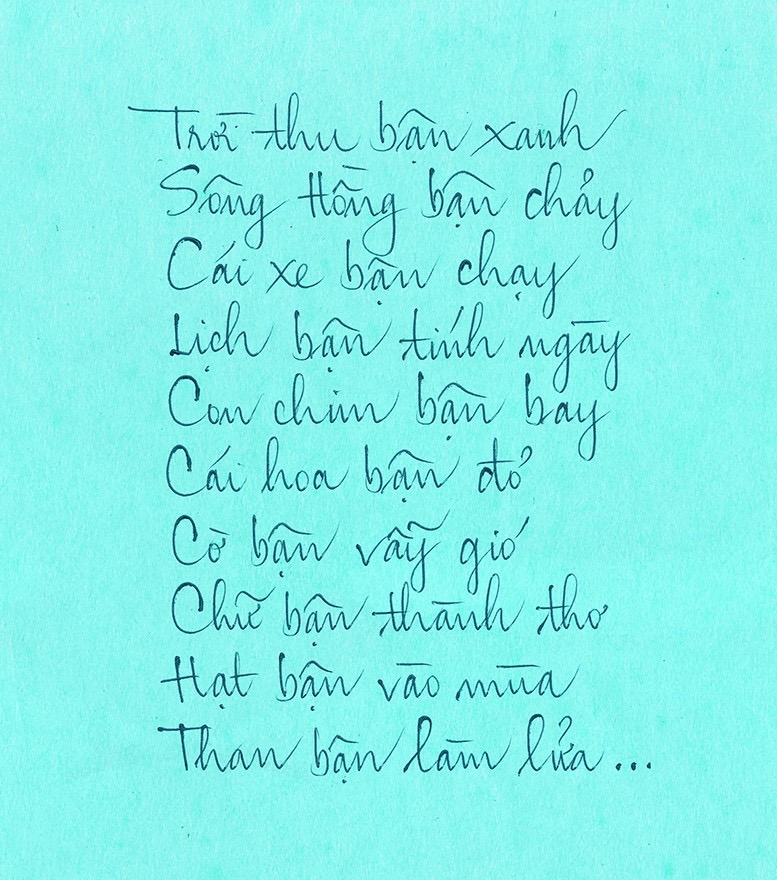 Trời thu bận xanh
Sông Hồng bận chảy
Cái xe bận chạy
Lịch bận tính ngày
Con chim bận bay
Cái hoa bận đỏ
Cờ bận vẫy gió
Chữ bận thành thơ
Hạt bận vào mùa
Than bận làm lửa...